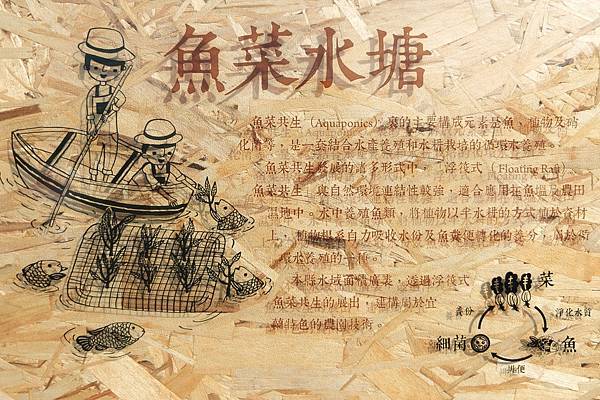 魚菜水塘
魚菜共生（Aquaponics）裏的主要構成元素是魚、植物及硝
化菌等，是一套結合水產養殖和水耕栽培的循環水養殖。
魚菜共生發展的諸多形式中，浮筏式（Floating Raft）
魚菜共生，與自然環境連結性較強，適合應用在魚塭及農田
濕地中。水中養殖魚類，將植物以半水耕的方式植於資材
上，植物根系自力吸收水份及魚糞便轉化的養分，屬於循
環水養殖的一種。
本縣水域面積廣衰，透過浮筏式
魚菜共生的展出，建構屬於宜
蘭特色的農園技術。
菜
養份
淨化水質
細菌
魚
排便